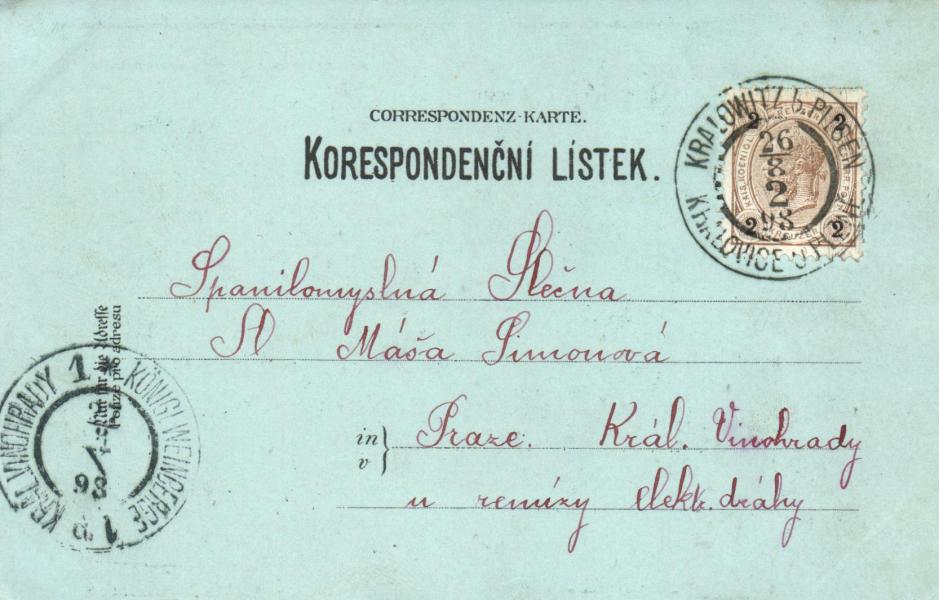 CORRESPONDENZ-KARTE.
KORESPONDENČNÍ LÍSTEK.
KRALOWITZ b. PILSEN
26
8
2
98
KRALOVICE U
2 2
2 2
Spanilomyslná Slečna
Sl Máša Šimonová
in
v
Praze. Král. Vinohrady
u remízy elektr. dráhy
Nur für die Adresse
Pouze pro adresu
KRÁL. VINOHRADY 1 * KÖNIGL. WEINBERGE 1
98